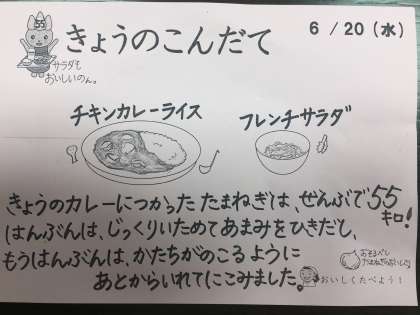 6 / 20 (水)
55
きょうのこんだて
サラダも
おいしいのん。
チキンカレーライス
フレンチサラダ
きょうのカレーにつかった たまねぎは、ぜんぶで55キロ!
はんぶんは、じっくりいためてあまみをひきだし、
もうはんぶんは、かたちがのこるように
あとからいれてにこみました。
おいしくたべよう!